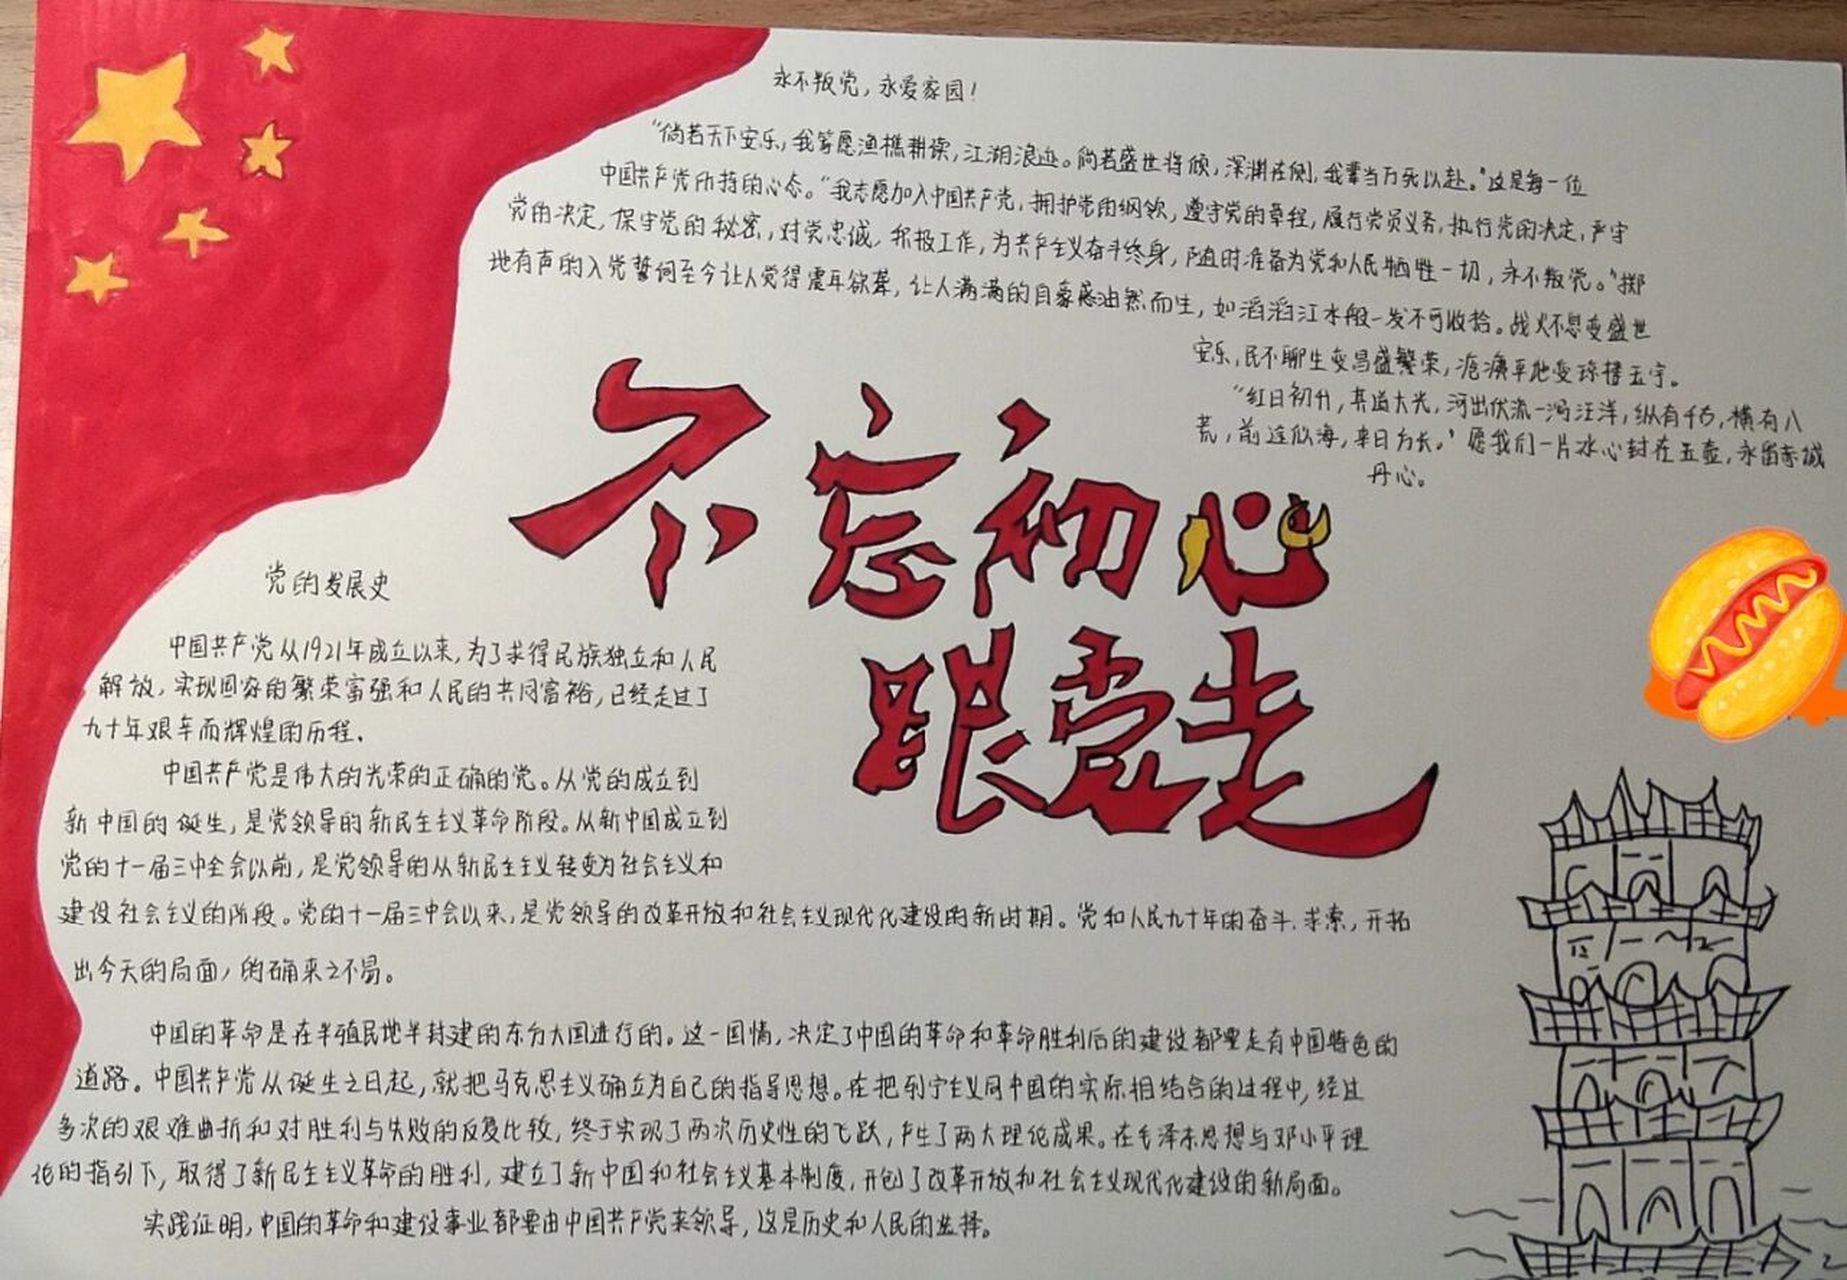 永不叛党，永爱家园！
“倘若天下安乐，我等愿渔樵耕读，江湖浪迹。倘若盛世将倾，深渊在侧，我辈当万死以赴。”这是每一位
中国共产党所持的心态。“我志愿加入中国共产党，拥护党的纲领，遵守党的章程，履行党员义务，执行党的决定，严守
党的决定，保守党的秘密，对党忠诚，积极工作，为共产主义奋斗终身，随时准备为党和人民牺牲一切，永不叛党。”掷
地有声的入党誓词至今让人觉得震耳欲聋，让人满满的自豪感油然而生，如滔滔江水般一发不可收拾。战火不息变盛世
安乐，民不聊生变昌盛繁荣，沧澳平地变琼楼玉宇。
“红日初升，其道大光，河出伏流一泻汪洋，纵有千古，横有八
荒，前途似海，来日方长。”愿我们一片冰心封在玉壶，永留赤诚
丹心。
不忘初心
跟党走
党的发展史
中国共产党从1921年成立以来，为了求得民族独立和人民
解放，实现国家的繁荣富强和人民的共同富裕，已经走过了
九十年艰辛而辉煌的历程.
中国共产党是伟大的光荣的正确的党。从党的成立到
新中国的诞生，是党领导的新民主主义革命阶段。从新中国成立到
党的十一届三中全会以前，是党领导的从新民主主义转变为社会主义和
建设社会主义的阶段。党的十一届三中会以来，是党领导的改革开放和社会主义现代化建设的新时期。党和人民九十年的奋斗.求索，开拓
出今天的局面，的确来之不易。
中国的革命是在半殖民地半封建的东方大国进行的。这一国情，决定了中国的革命和革命胜利后的建设都要走有中国特色的
道路。中国共产党从诞生之日起，就把马克思主义确立为自己的指导思想。在把列宁主义同中国的实际相结合的过程中，经过
多次的艰难曲折和对胜利与失败的反复比较，终于实现了两次历史性的飞跃，产生了两大理论成果。在毛泽东思想与邓小平理
论的指引下，取得了新民主主义革命的胜利，建立了新中国和社会主义基本制度，开创了改革开放和社会主义现代化建设的新局面。
实践证明，中国的革命和建设事业都要由中国共产党来领导，这是历史和人民的选择。